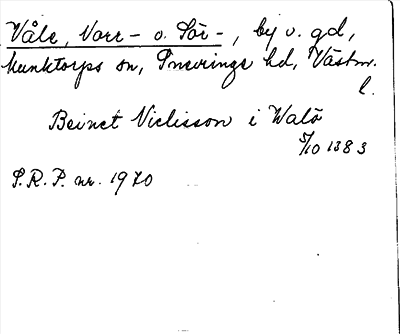 Våle, Norr- o. Sör-, by o. gd,
Munktorps sn, Snevringe hd, Västm.
l.
Beinct Niclisson i Walö
5/10 1383
S.R.P. nr. 1970